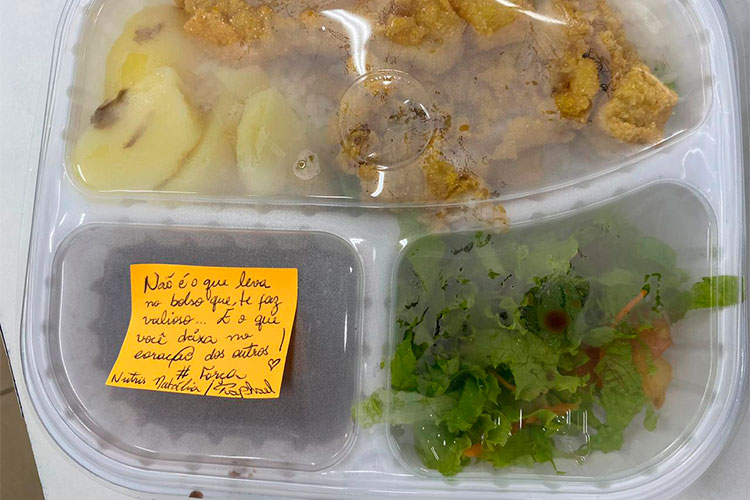 Não é o que leva
no bolso que te faz
valioso... É o que
você deixa no
coração dos outros!
# Força
Nutris Natália / Raphael